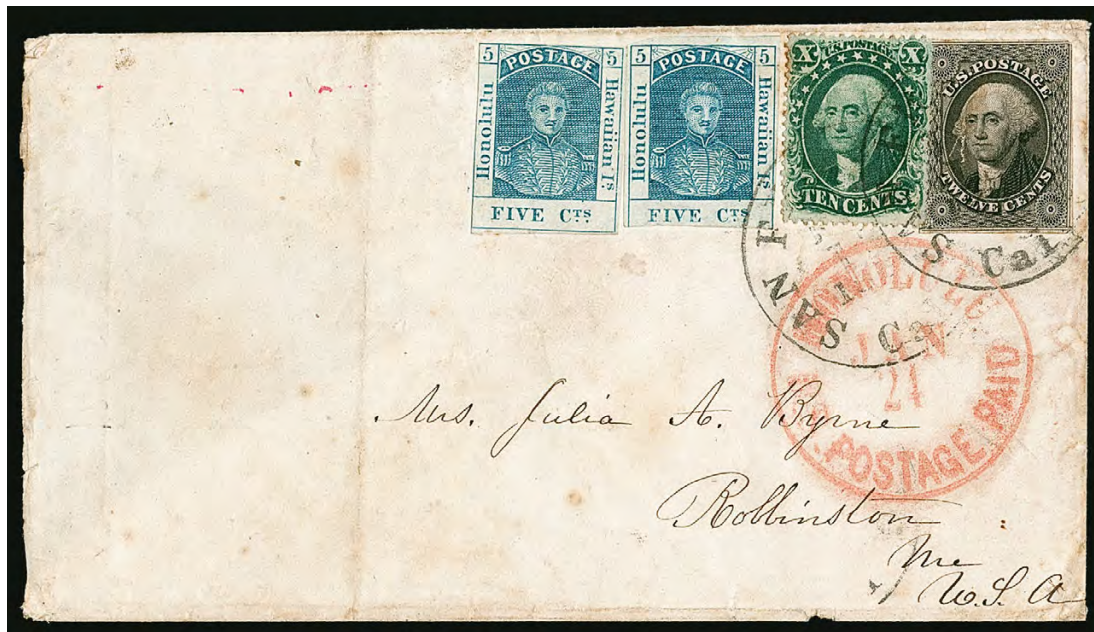 5 POSTAGE 5
Honolulu
Hawaiian Is.
FIVE CTS
5 POSTAGE 5
Honolulu
Hawaiian Is
FIVE CTS
X U.S. POSTAGE X
TEN CENTS
U.S. POSTAGE
TWELVE CENTS
SAN F
Ca
S Cal
HONOLULU
JAN
24
U.S. POSTAGE PAID
Mrs. Julia A. Byrne
Robbinston
Me
U.S.A